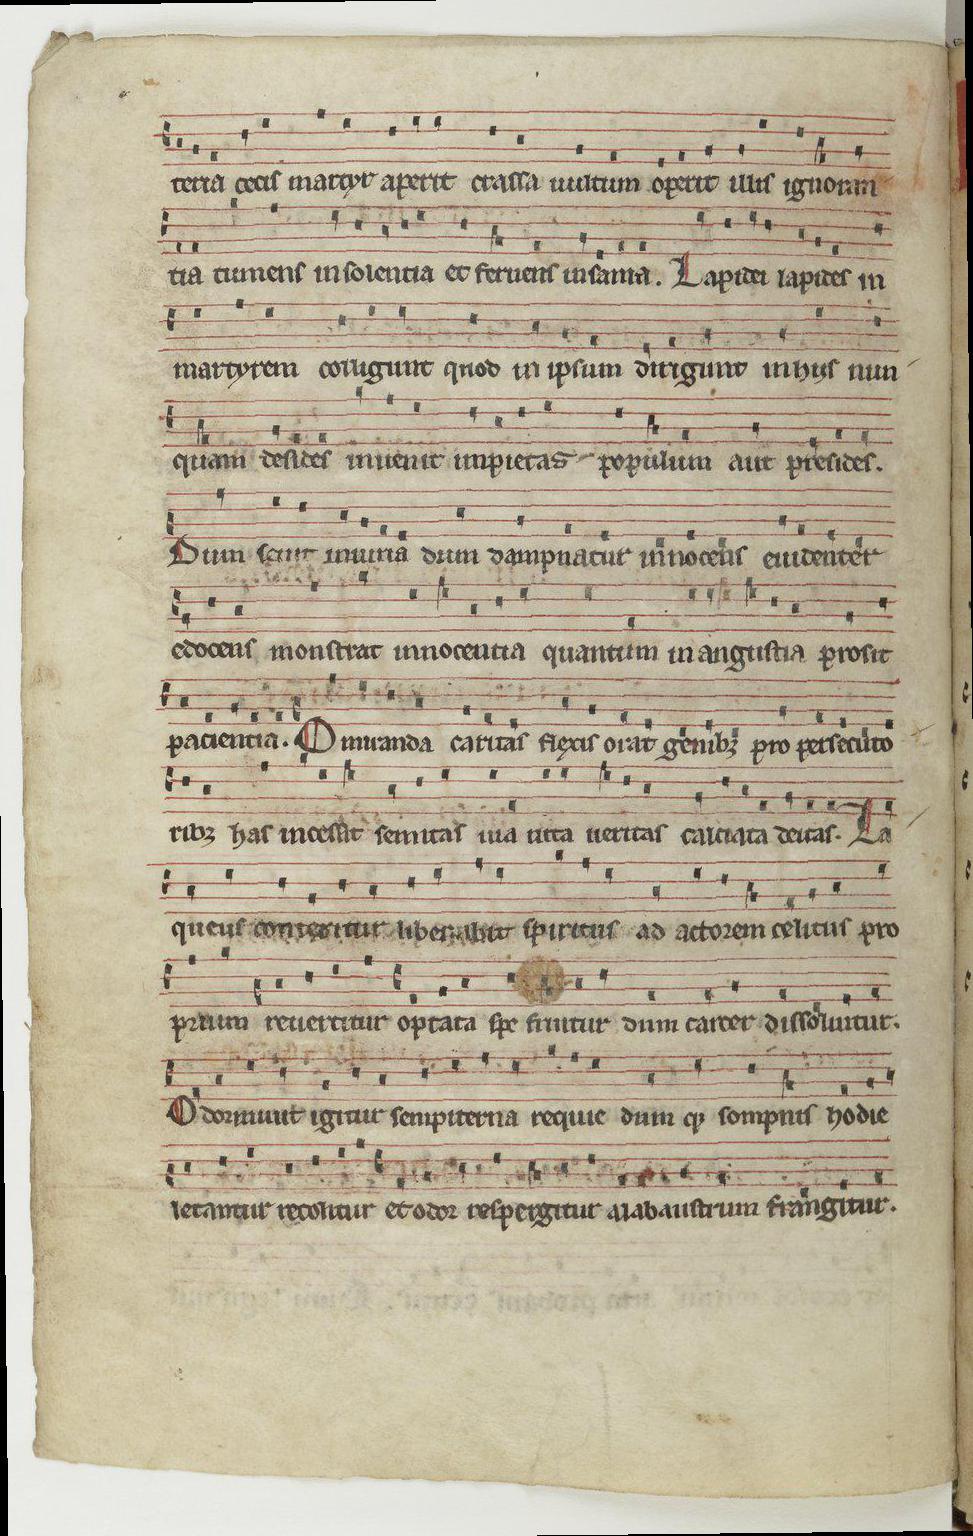 teria cecis martyr aperit crassa uultum operit illis ignoran
tia tumens insolentia et feruens insania. Lapidei lapides in
martyrem corrigunt quod in ipsum dirigunt in hijs nun
quam desides inuenit impietas populum aut presides.
Dum sciit iniuria dum dampnatur innocens euidenter
edocens monstrat innocentia quantum in angustia prosit
paciencia. O miranda caritas flexis orat genibꝫ pro persecuto
ribꝫ has incessit semitas uia uita ueritas calciata deitas. La
queus conteritur liberabit spiritus ad actorem celitus pro
prium reuertitur optata spe fruitur dum carcer dissoluitur.
Odormiuit igitur sempiterna requie dum qꝫ sompnus hodie
letantur recolitur et odor respergitur alabaustrum frangitur.